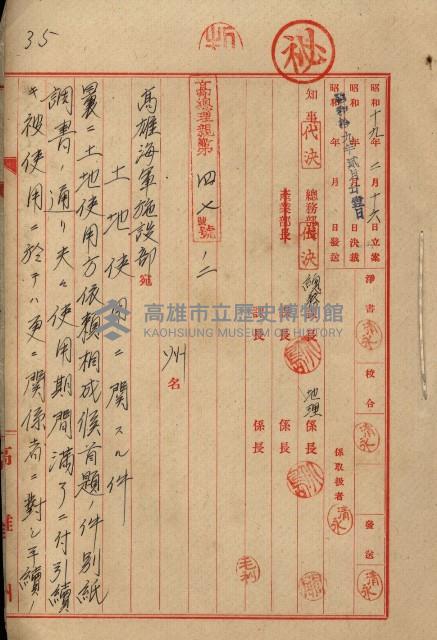 35
秘
昭和十九年二月十六日立案
昭和 年 月 日決裁
昭和 年 月 日發送
淨書
清永
校合
清永
發送
清永
知事
代決
總務部長
代決
產業部長
課長
係長
地理係長
課長
係長
課長
係長
係取扱者
清永
毛利
高總地親第四七號ノ二
州名
高雄海軍施設部宛
土地使用ニ関スル件
曩ニ土地使用方依頼相成候首題ノ件別紙
調書ノ通リ夫々使用期間満了ニ付引續
キ被使用ニ於テハ更ニ関係者ニ對シ手續ノ
高雄州
高雄市立歷史博物館
KAOHSIUNG MUSEUM OF HISTORY